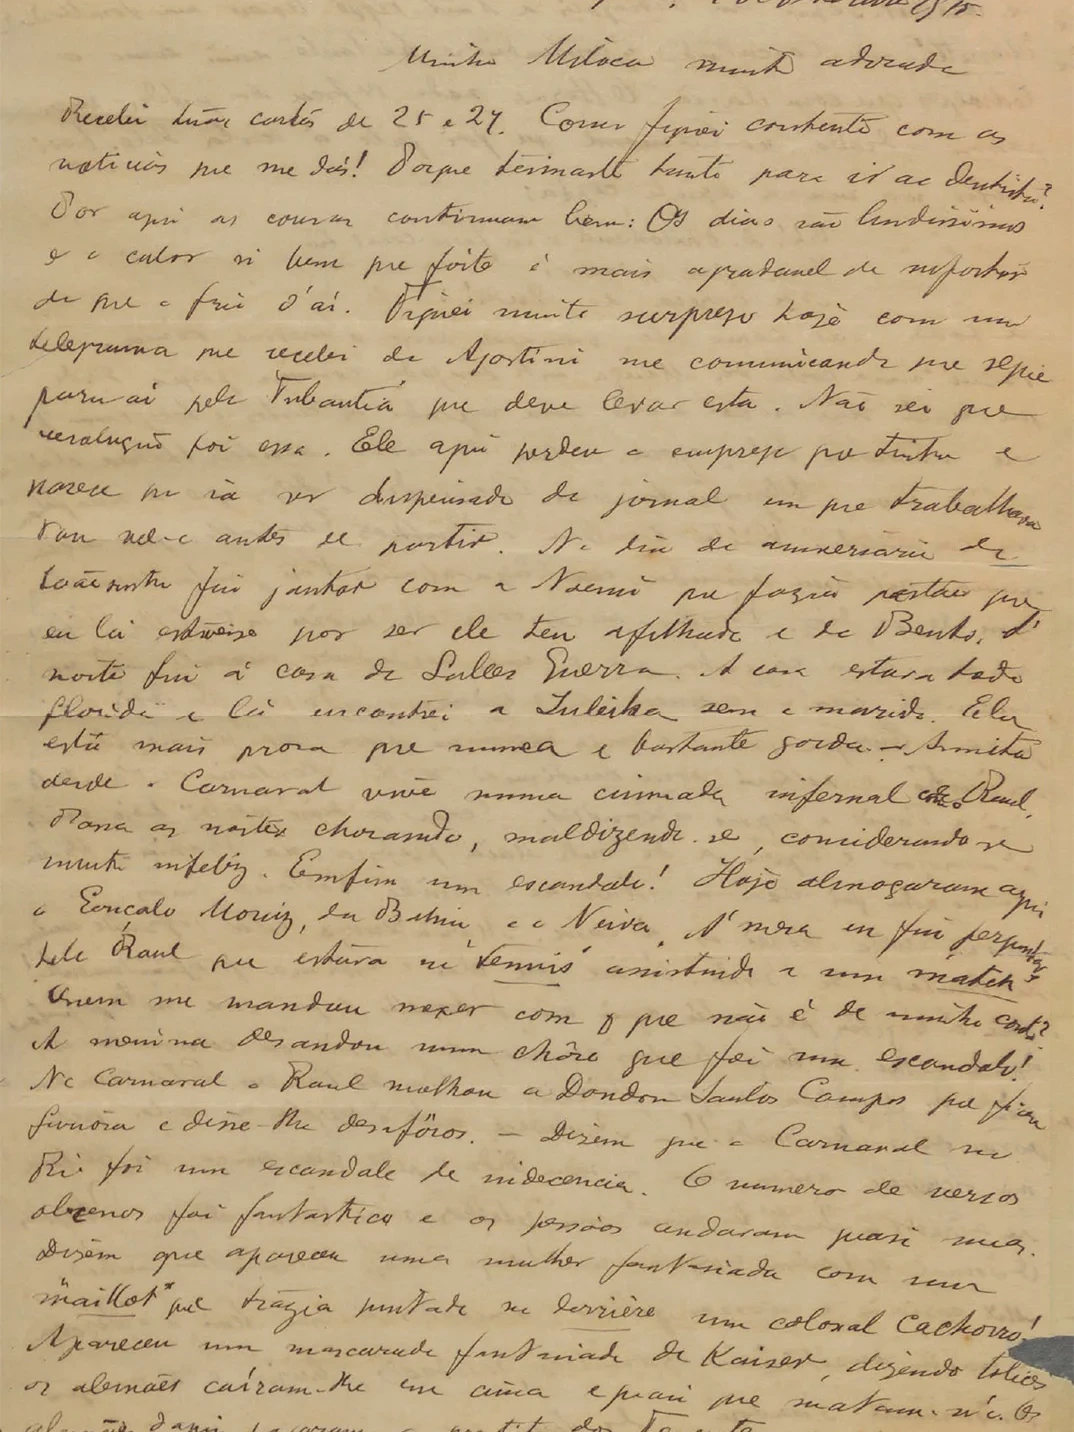 Minha Miloca muito adorada
Recebi tuas cartas de 25 e 27. Como fiquei contente com as
noticias que me dás! Porque teimaste tanto para ir ao dentista?
Por aqui as cousas continuam bem: Os dias são lindissimos
e o calor si bem que forte é mais agradavel de suportar
do que o frio d'aí. Fiquei muito surpreso hoje com um
telegrama que recebi do Agostini me comunicando que segue
para aí pelo Tubantia que deve levar esta. Não sei que
resolução foi essa. Ele aqui perdeu o emprego que tinha e
parece que ia ser dispensado do jornal em que trabalhava
Vou vel-o antes de partir. No dia do aniversario do
fui jantar com a Noemi que fazia questão que
eu lá estivesse por ser ele teu afilhado e do Bento. Á
noite fui á casa do Salles Guerra. A casa estava toda
florida e lá encontrei a Zuleika sem o marido. Ela
está mais prosa que nunca e bastante gorda. – Annita
desde o Carnaval vive numa ciumada infernal Raul.
Passa as noites chorando, maldizendo-se, considerando-se
muito infeliz. Emfim um escandalo! Hoje almoçaram aqui
o Gonçalo Moniz, da Bahia e o Neiva. Á mesa eu fui perguntar
pelo Raul que estava no "tennis" assistindo a um match?
Quem me mandou mexer com o que não é de minha conta?
A menina desandou num chôro que foi um escandalo!
No Carnaval o Raul molhou a Dondon Santos Campos que ficou
furiosa e disse-lhe desafôros. – Dizem que o Carnaval no
Rio foi um escandalo de indecencia. O numero de versos
obcenos foi fantastico e as pessôas andaram quasi nuas.
Dizem que apareceu uma mulher fantasiada com um
"maillot" que trazia pintado no derrière um colossal cachorro!
Apareceu um mascarado fantasiado de Kaiser, dizendo tolices
os alemães caíram-lhe em cima e quasi que matam-n'o. Os